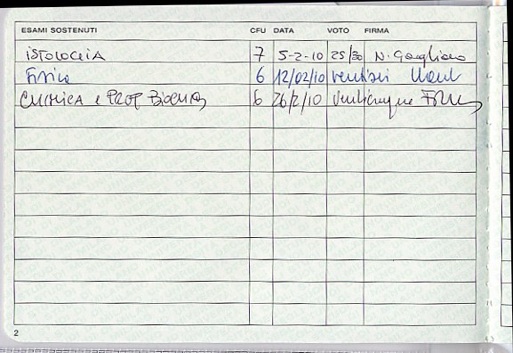 ESAMI SOSTENUTI CFU DATA VOTO FIRMA
ISTOLOGIA 7 5-2-10 25/30 N. Gagliano
Fisica 6 12/02/10 ventisei
CHIMICA e PROP. BIOCHIM 6 26/2/10 venticinque
2